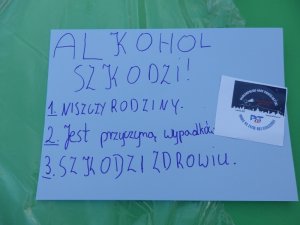 ALKOHOL
SZKODZI!
1. NISZCZY RODZINY.
2. Jest przyczyną wypadków
3. SZKODZI ZDROWIU.